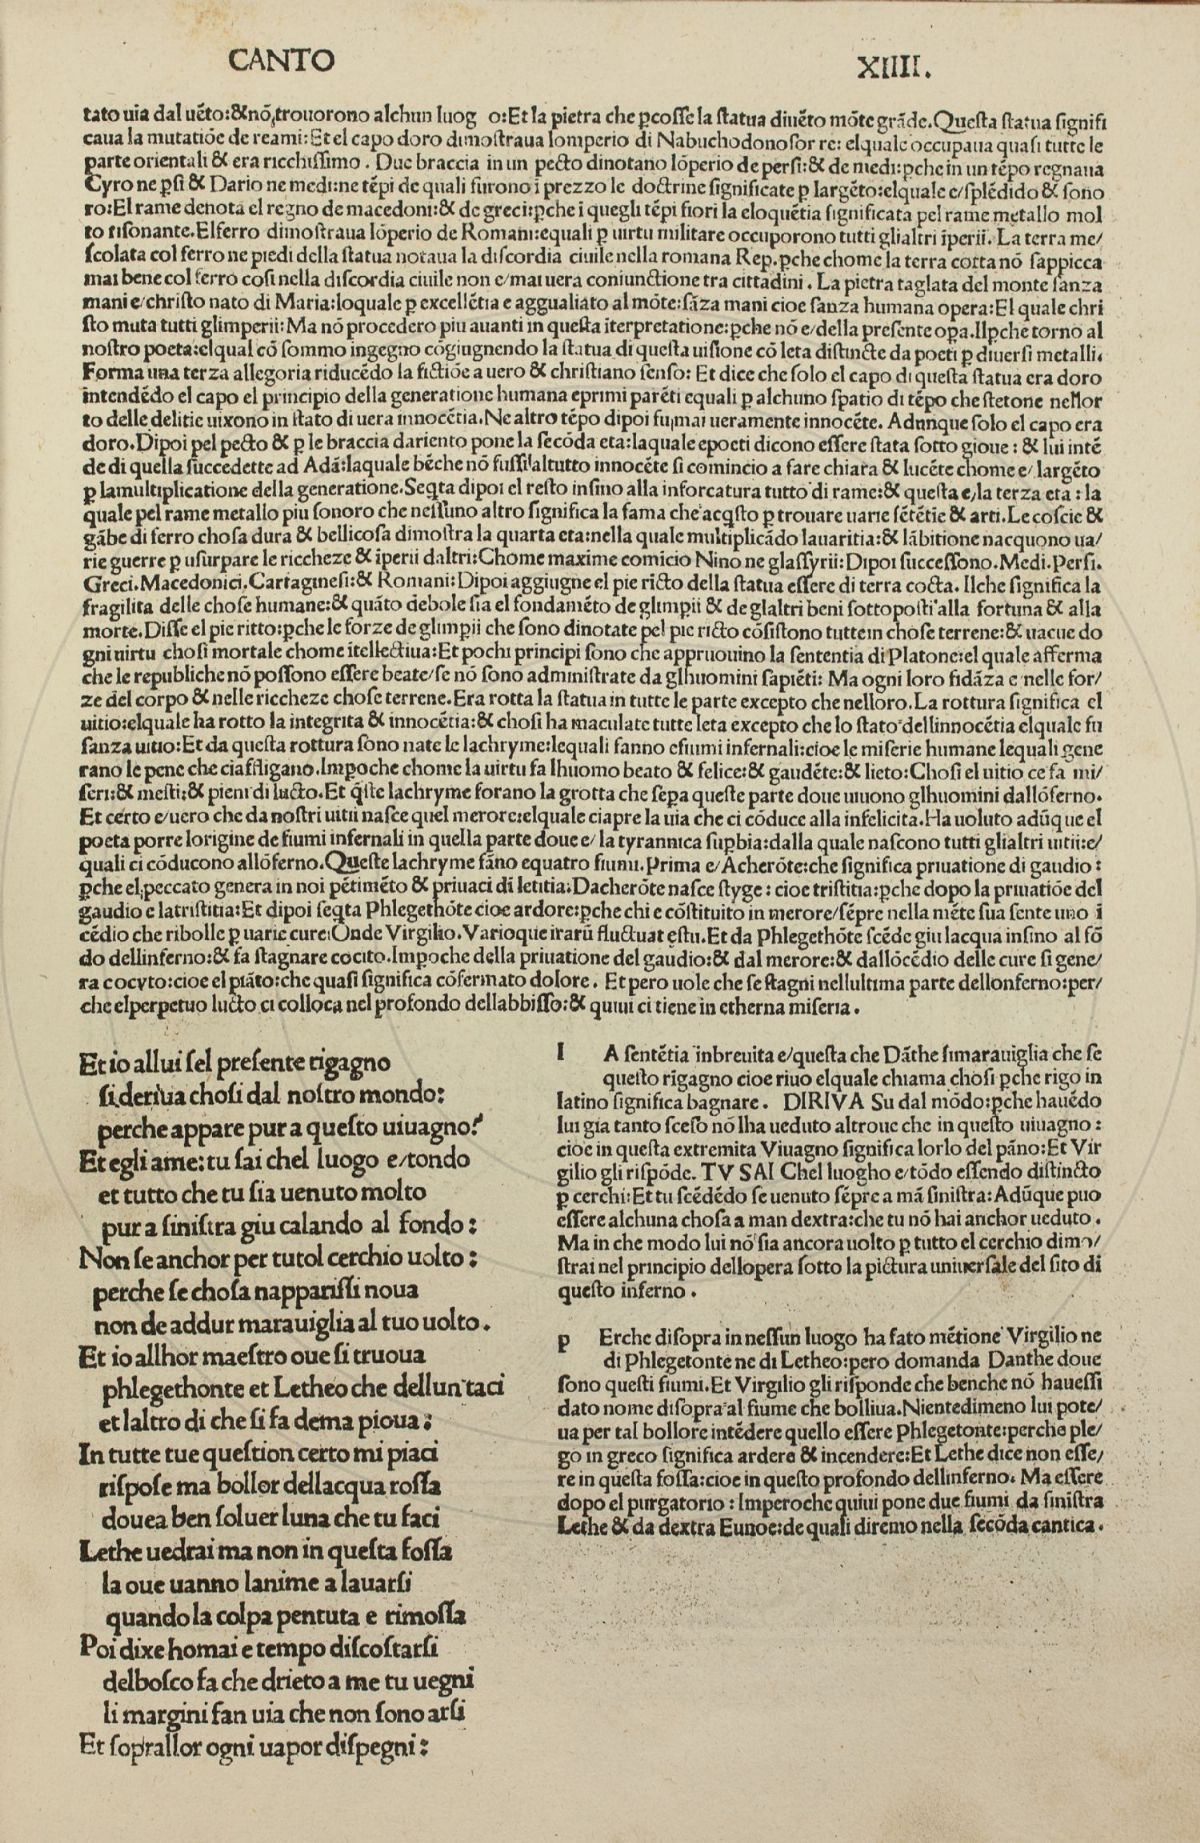 CANTO XIIII.
tato uia dal uēto:&nō trouorono alchun luog o:Et la pietra che ꝑcosse la statua diuēto mōte grāde.Questa statua signifi
caua la mutatiōe de reami:Et el capo doro dimostraua lomperio di Nabuchodonosor re: elquale occupaua quasi tutte le
parte orientali & era ricchissimo . Due braccia in un pecto dinotano lōperio de persi:& de medi:ꝑche in un tēpo regnaua
Cyro ne ꝑsi & Dario ne medi:ne tēpi de quali furono ī prezzo le doctrine significate ꝑ largēto:elquale e/splēdido & sono
ro:El rame denota el regno de macedoni:& de greci:ꝑche i quegli tēpi fiori la eloquētia significata pel rame metallo mol
to risonante.Elferro dimostraua lōperio de Romani:equali ꝑ uirtu militare occuporono tutti glialtri īperii. La terra me/
scolata col ferro ne piedi della statua notaua la discordia ciuile nella romana Rep.ꝑche chome la terra cotta nō sappicca
mai bene col ferro cosi nella discordia ciuile non e/mai uera coniunctione tra cittadini . La pietra taglata del monte sanza
mani e/christo nato di Maria:loquale ꝑ excellētia e aggualiato al mōte:sāza mani cioe sanza humana opera:El quale chri
sto muta tutti glimperii:Ma nō procedero piu auanti in questa īterpretatione:ꝑche nō e/della presente oꝑa.Ilꝑche torno al
nostro poeta:elqual cō sommo ingegno cōgiugnendo la statua di questa uisione cō leta distincte da poeti ꝑ diuersi metalli.
Forma una terza allegoria riducēdo la fictiōe a uero & christiano senso: Et dice che solo el capo di questa statua era doro
intendēdo el capo el principio della generatione humana eprimi parēti equali ꝑ alchuno spatio di tēpo che stetono nellor
to delle delitie uixono in stato di uera innocētia.Ne altro tēpo dipoi fu mai ueramente innocēte. Adunque solo el capo era
doro.Dipoi pel pecto & ꝑ le braccia dariento pone la secōda eta:laquale epoeti dicono essere stata sotto gioue : & lui intē
de di quella succedette ad Adā:laquale bēche nō fussi altutto innocēte si comincio a fare chiara & lucēte chome e/ largēto
ꝑ lamultiplicatione della generatione.Seqta dipoi el resto insino alla inforcatura tutto di rame:& questa e/la terza eta : la
quale pel rame metallo piu sonoro che nessuno altro significa la fama che acqsto ꝑ trouare uarie sētētie & arti.Le coscie &
gābe di ferro chosa dura & bellicosa dimostra la quarta eta:nella quale multiplicādo lauaritia:& lābitione nacquono ua/
rie guerre ꝑ usurpare le riccheze & īperii daltri:Chome maxime comicio Nino ne glassyrii: Dipoi successono. Medi. Persi.
Greci.Macedonici.Cartaginesi:& Romani:Dipoi aggiugne el pie ricto della statua essere di terra cocta. Ilche significa la
fragilita delle chose humane:& quāto debole sia el fondamēto de glimꝑii & de glaltri beni sottoposti alla fortuna & alla
morte.Disse el pie ritto:ꝑche le forze de glimꝑii che sono dinotate pel pie ricto cōsistono tuttein chose terrene:& uacue do
gni uirtu chosi mortale chome ītellectiua:Et pochi principi sono che appruouino la sententia di Platone:el quale afferma
che le republiche nō possono essere beate/se nō sono administrate da glhuomini sapiēti: Ma ogni loro fidāza e nelle for/
ze del corpo & nelle riccheze chose terrene. Era rotta la statua in tutte le parte excepto che nelloro.La rottura significa el
uitio:elquale ha rotto la integrita & innocētia:& chosi ha maculate tutte leta excepto che lo stato dellinnocētia elquale fu
sanza uitio:Et da questa rottura sono nate le lachryme:lequali fanno efiumi infernali:cioe le miserie humane lequali gene
rano le pene che ciaffligano.Imꝑoche chome la uirtu fa lhuomo beato & felice:& gaudēte:& lieto:Chosi el uitio ce fa mi/
seri:& mesti:& pieni di lucto.Et q̄ste lachryme forano la grotta che seꝑa queste parte doue uiuono glhuomini dallōferno.
Et certo e/uero che da nostri uitii nasce quel merore:elquale ciapre la uia che ci cōduce alla infelicita.Ha uoluto adūque el
poeta porre lorigine de fiumi infernali in quella parte doue e/ la tyrannica suꝑbia:dalla quale nascono tutti glialtri uitii:e/
quali ci cōducono allōferno.Queste lachryme fāno equatro fiumi.Prima e/Acherōte:che significa priuatione di gaudio :
ꝑche el peccato genera in noi pētimēto & priuaci di letitia.Dacherōte nasce styge : cioe tristitia:ꝑche dopo la priuatiōe del
gaudio e latristitia:Et dipoi seqta Phlegethōte cioe ardore:ꝑche chi e cōstituito in merore/sēpre nella mēte sua sente uno ī
cēdio che ribolle ꝑ uarie cure:Onde Virgilio.Varioque irarū fluctuat ęstu.Et da Phlegethōte scēde giu lacqua insino al fō
do dellinferno:& fa stagnare cocito.Imꝑoche della priuatione del gaudio:& dal merore:& dallōcēdio delle cure si gene/
ra cocyto:cioe el piāto:che quasi significa cōfermato dolore . Et pero uole che se stagni nellultima parte dellonferno:per/
che elperpetuo lucto ci colloca nel profondo dellabbisso:& quiui ci tiene in etherna miseria .
Et io allui sel presente rigagno
si deriua chosi dal nostro mondo:
perche appare pur a questo uiuagno?
Et egli ame:tu sai chel luogo e/tondo
et tutto che tu sia uenuto molto
pur a sinistra giu calando al fondo :
Non se anchor per tutol cerchio uolto :
perche se chosa napparissi noua
non de addur marauiglia al tuo uolto .
Et io allhor maestro oue si truoua
phlegethonte et Letheo che dellun taci
et laltro di che si fa desta pioua:
In tutte tue question certo mi piaci
rispose ma bollor dellacqua rossa
douea ben soluer luna che tu faci
Lethe uedrai ma non in questa fossa
la oue uanno lanime a lauarsi
quando la colpa pentuta e rimossa
Poi dixe homai e tempo discostarsi
delbosco fa che drieto a me tu uegni
li margini fan uia che non sono arsi
Et soprallor ogni uapor dispegni :
I A sentētia inbreuita e/questa che Dāthe simarauiglia che se
questo rīgagno cioe riuo elquale chiama chosi ꝑche rigo in
latino significa bagnare . DIRIVA Su dal mōdo:ꝑche hauēdo
lui gia tanto sceso nō lha ueduto altroue che in questo uiuagno :
cioe in questa extremita Viuagno significa lorlo del pāno:Et Vir
gilio gli rispōde. TV SAI Chel luogho e/tōdo essendo distincto
ꝑ cerchi:Et tu scēdēdo se uenuto sēpre a mā sinistra: Adūque puo
essere alchuna chosa a man dextra:che tu nō hai anchor ueduto .
Ma in che modo lui nō sia ancora uolto ꝑ tutto el cerchio dimo/
strai nel principio dellopera sotto la pictura uniuersale del sito di
questo inferno .
P Erche disopra in nessun luogo ha fato mētione Virgilio ne
di Phlegetonte ne di Letheo:pero domanda Danthe doue
sono questi fiumi.Et Virgilio gli risponde che benche nō hauessi
dato nome disopra al fiume che bolliua.Nientedimeno lui pote/
ua per tal bollore intēdere quello essere Phlegetonte:perche ple/
go in greco significa ardere & incendere:Et Lethe dice non esse/
re in questa fossa:cioe in questo profondo dellinferno. Ma essere
dopo el purgatorio : Imperoche quiui pone due fiumi da sinistra
Lethe & da dextra Eunoe:de quali diremo nella secōda cantica .